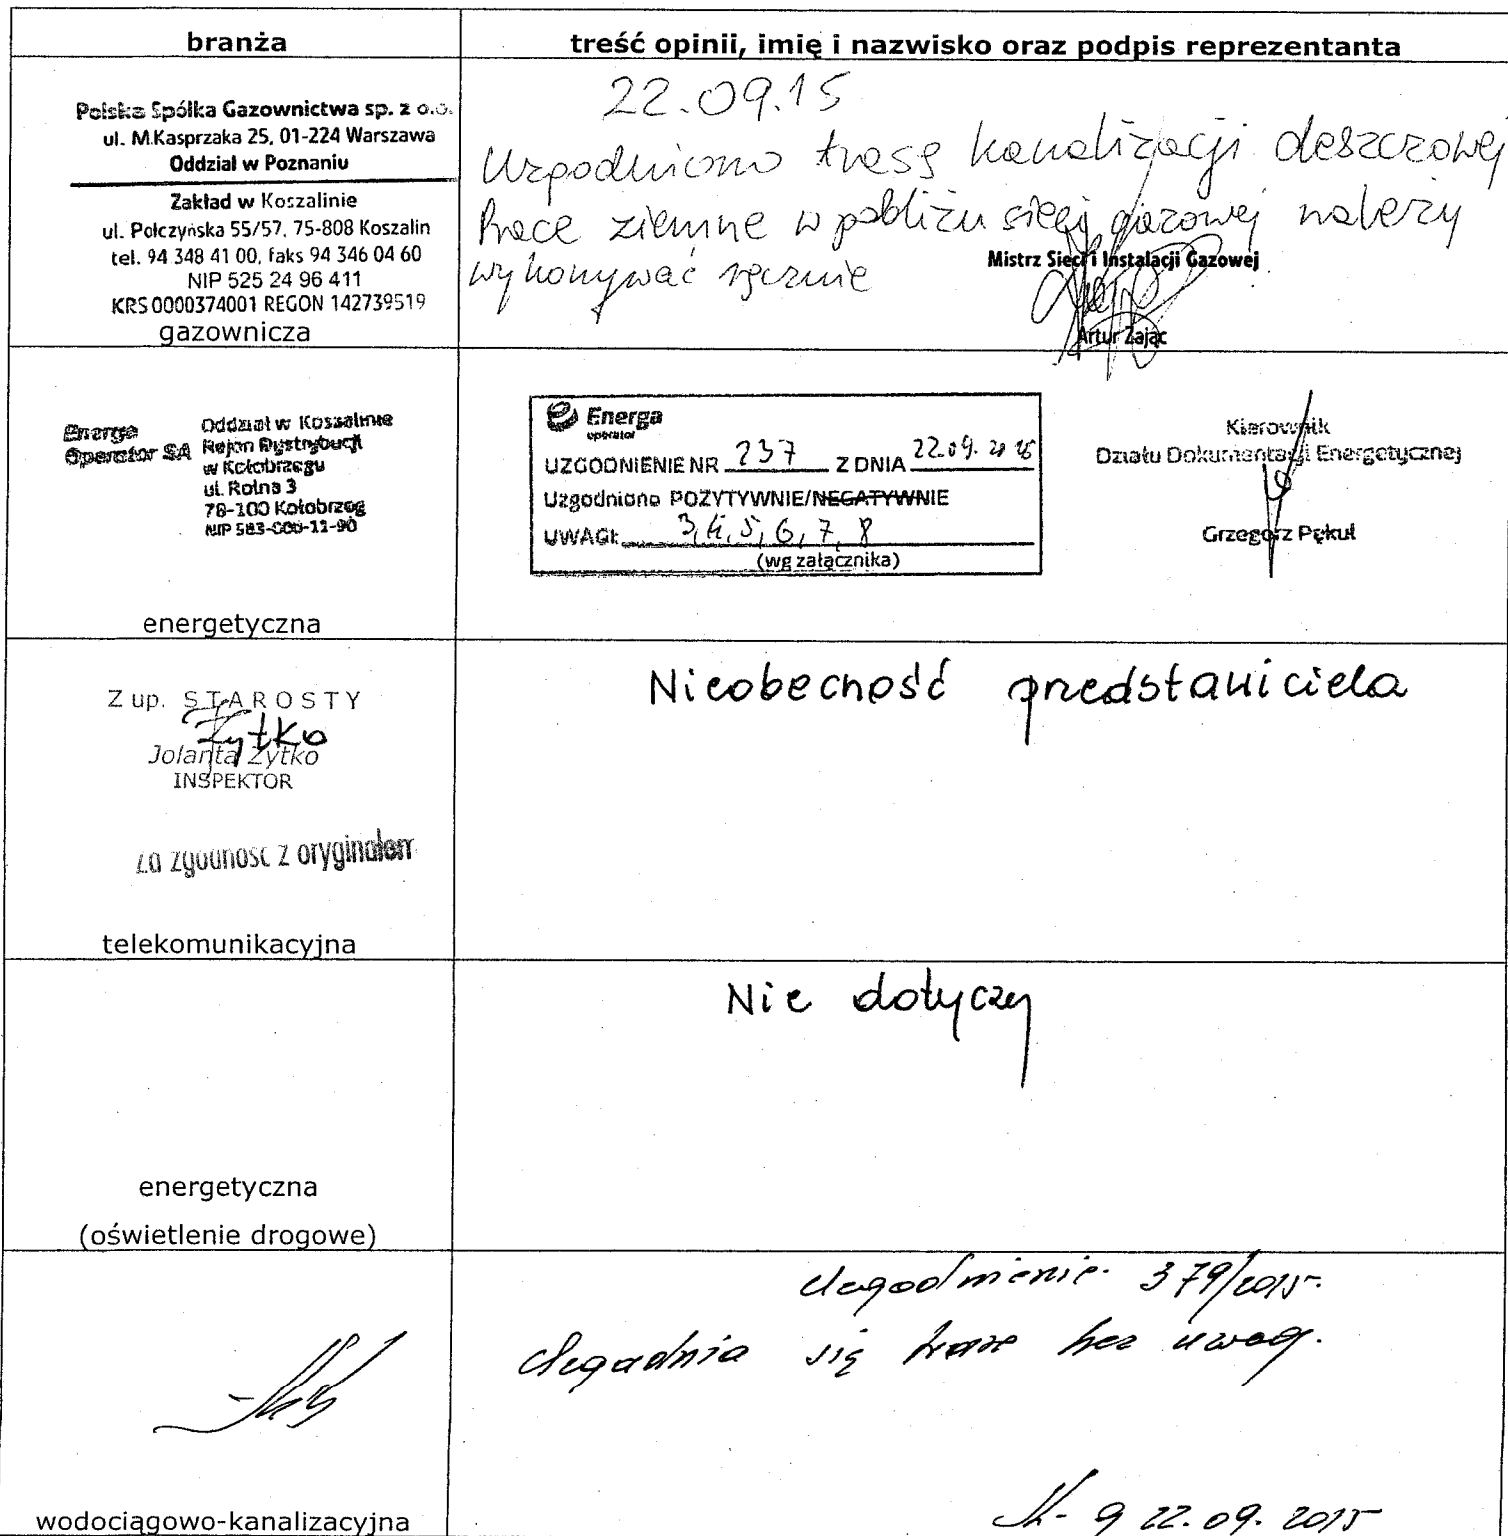 branża
treść opinii, imię i nazwisko oraz podpis reprezentanta
Polska Spółka Gazownictwa sp. z o.o.
ul. M.Kasprzaka 25, 01-224 Warszawa
Oddział w Poznaniu
Zakład w Koszalinie
ul. Połczyńska 55/57, 75-808 Koszalin
tel. 94 348 41 00, faks 94 346 04 60
NIP 525 24 96 411
KRS 0000374001 REGON 142739519
gazownicza
22.09.15
Uzgodniono trasę kanalizacji deszczowej
Prace ziemne w pobliżu sieci gazowej należy
wykonywać ręcznie
Mistrz Sieci i Instalacji Gazowej
Artur Zając
Energa Operator SA
Oddział w Koszalinie
Rejon Dystrybucji
w Kołobrzegu
ul. Rolna 3
78-100 Kołobrzeg
NIP 583-000-11-90
energetyczna
Energa
operator
UZGODNIENIE NR 237 Z DNIA 22.09.2015
Uzgodniono POZYTYWNIE/NEGATYWNIE
UWAGI: 3, 4, 5, 6, 7, 8
(wg załącznika)
Kierownik
Działu Dokumentacji Energetycznej
Grzegorz Pękul
Z up. STAROSTY
Żytko
Jolanta Żytko
INSPEKTOR
Za zgodność z oryginałem
telekomunikacyjna
Nieobecność przedstawiciela
energetyczna
(oświetlenie drogowe)
Nie dotyczy
wodociągowo-kanalizacyjna
Uzgodnienie 379/2015.
Uzgadnia się trasę bez uwag.
22.09.2015